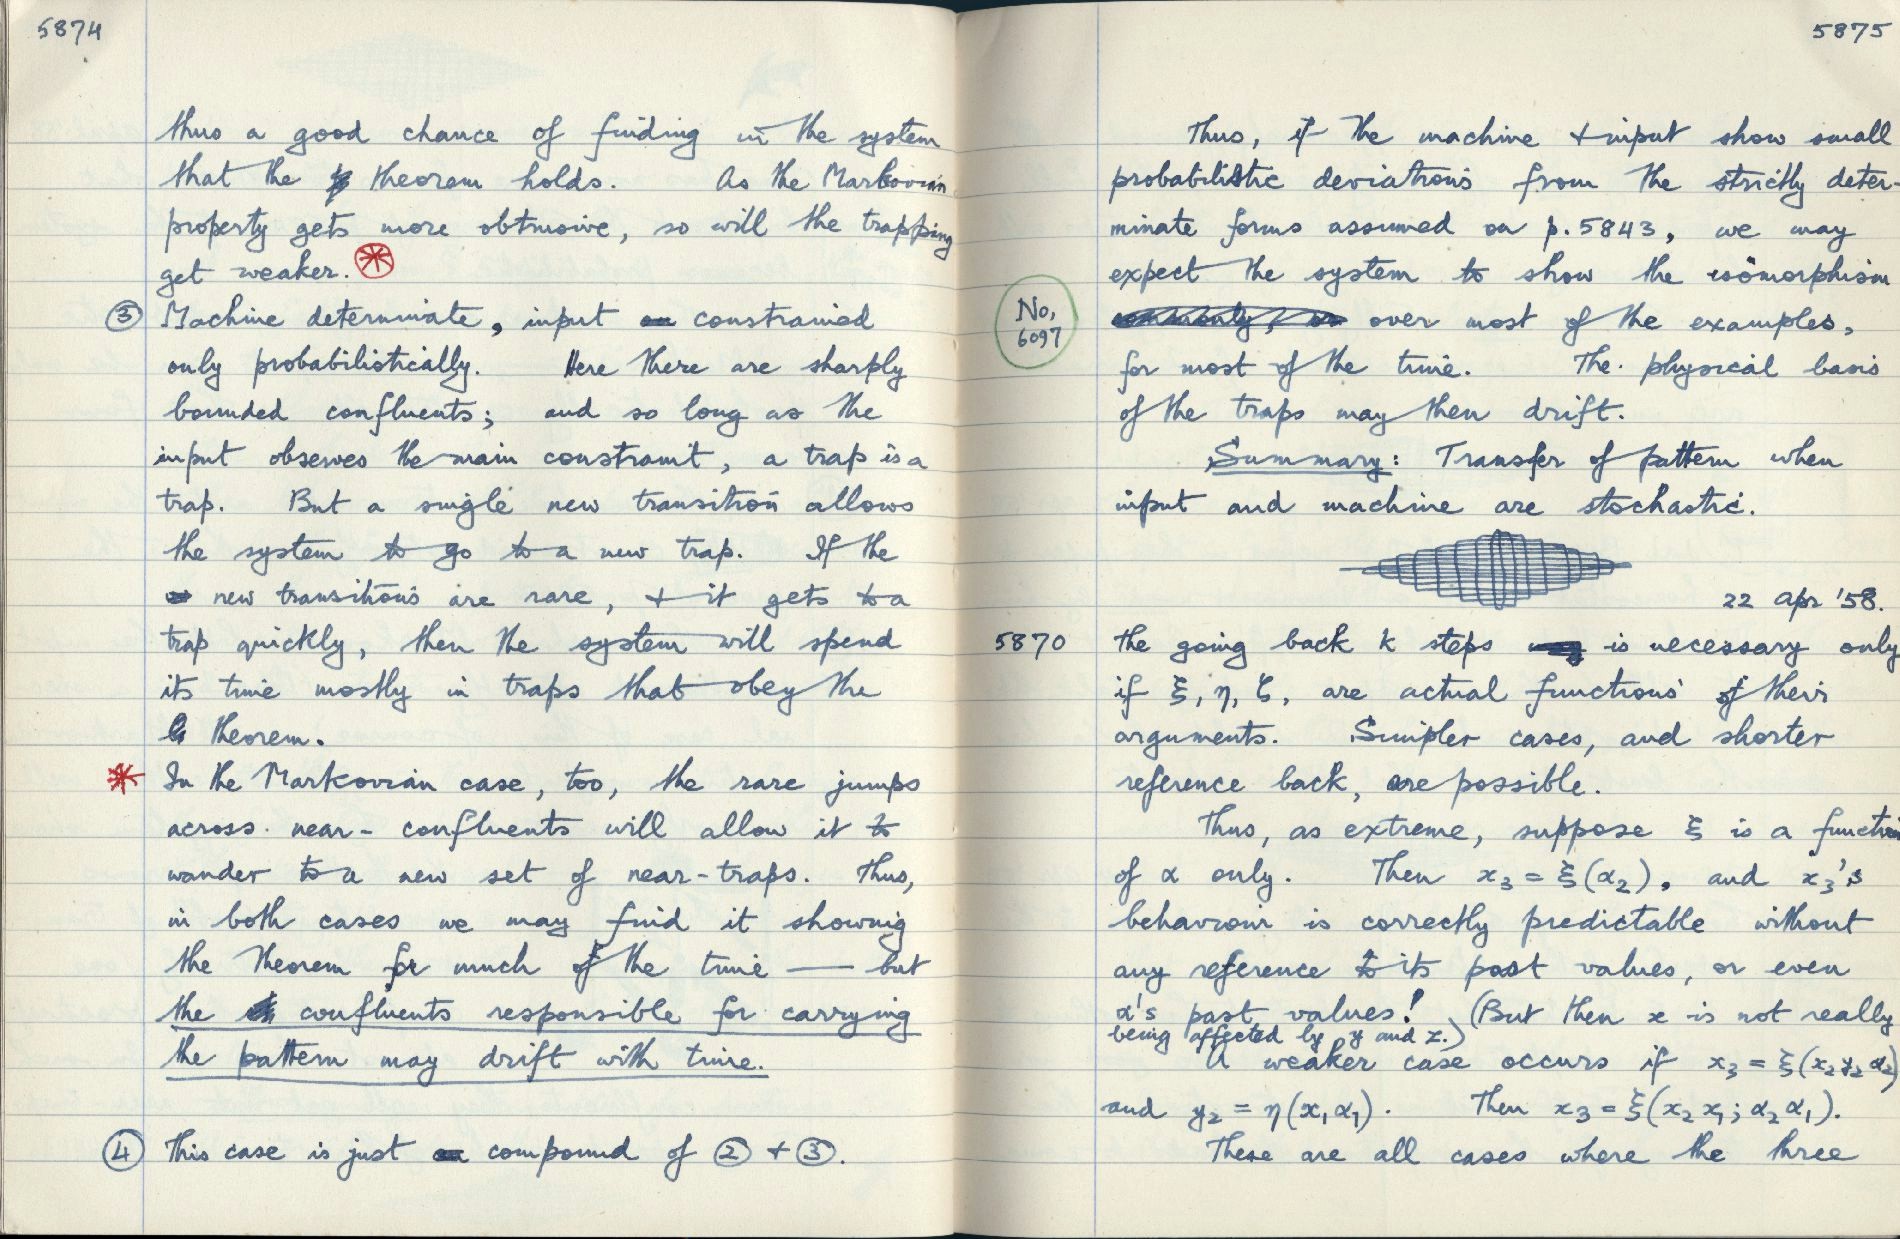 5874
thus a good chance of finding in the system
that the theorem holds. As the Markovian
property gets more obtrusive, so will the trapping
get weaker. *
③ Machine determinate, input constrained
only probabilistically. Here there are sharply
bounded confluents; and so long as the
input observes the main constraint, a trap is a
trap. But a single new transition allows
the system to go to a new trap. If the
new transitions are rare, + it gets to a
trap quickly, then the system will spend
its time mostly in traps that obey the
theorem.
* In the Markovian case, too, the rare jumps
across near-confluents will allow it to
wander to a new set of near-traps. Thus,
in both cases we may find it showing
the theorem for much of the time — but
the confluents responsible for carrying
the pattern may drift with time.
④ This case is just compound of ② + ③.
5875
Thus, if the machine + input show small
probabilistic deviations from the strictly deter-
minate forms assumed on p. 5843, we may
expect the system to show the isomorphism
No,
6097
commonly, or over most of the examples,
for most of the time. The physical basis
of the traps may then drift.
Summary: Transfer of pattern when
input and machine are stochastic.
22 Apr '58.
5870 The going back k steps is necessary only
if ξ, η, ζ, are actual functions of their
arguments. Simpler cases, and shorter
reference back, are possible.
Thus, as extreme, suppose ξ is a function
of α only. Then x₃ = ξ(α₂), and x₃'s
behaviour is correctly predictable without
any reference to its past values, or even
α's past values! (But then x is not really
being affected by y and z.)
A weaker case occurs if x₃ = ξ(x₂ y₂ α₂)
and y₂ = η(x₁ α₁). Then x₃ = ξ(x₂ x₁; α₂ α₁).
These are all cases where the three